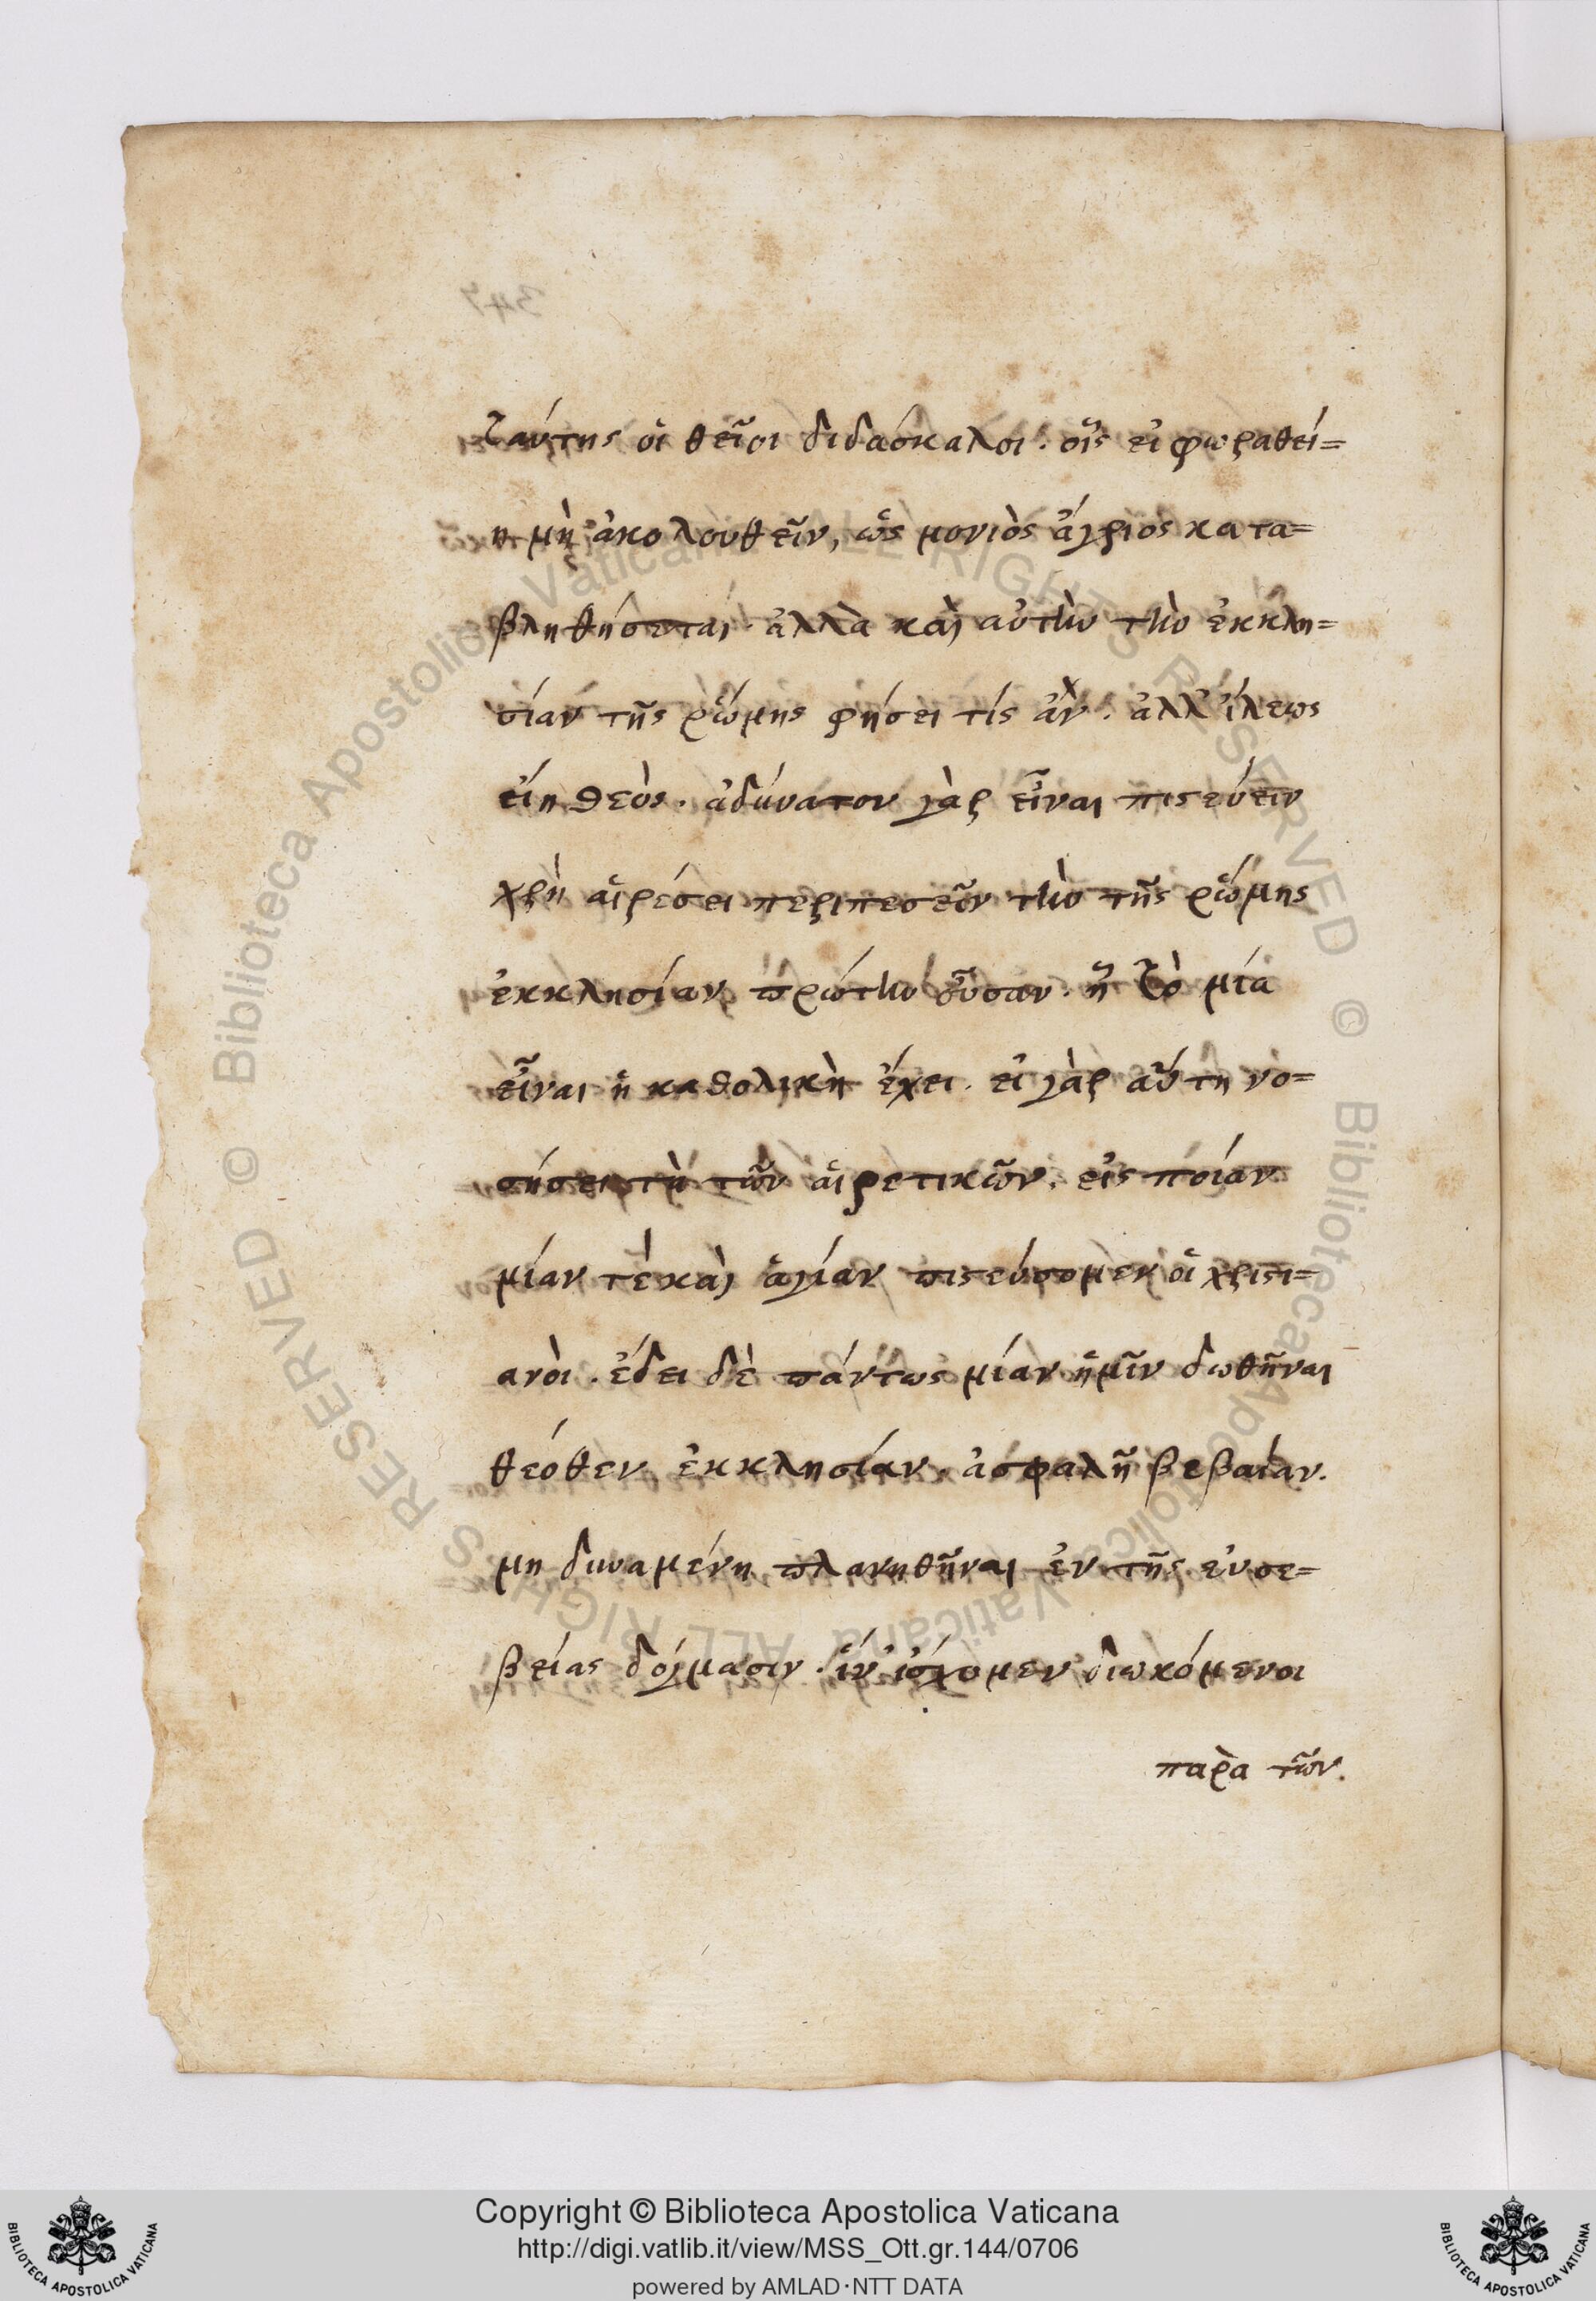 ταύτης οἱ θεῖοι διδάσκαλοι. οἷς εἰ φωραθεί=
η μὴ ἀκολουθεῖν, ὡς μονιὸς ἄγριος κατα=
βληθήσεται. ἀλλὰ καὶ αὐτὴν τὴν ἐκκλη=
σίαν τῆς ῥώμης φήσει τίς ἂν. ἀλλ' ἵλεως
εἴη θεὸς. ἀδύνατον γὰρ εἶναι πιστεύειν
χρὴ αἱρέσει περιπεσεῖν τὴν τῆς ῥώμης
ἐκκλησίαν πρώτην οὖσαν. ᾗ τὸ μία
εἶναι ἡ καθολικὴ ἔχει. εἰ γὰρ αὕτη νο=
σήσει τὴ τῶν αἱρετικῶν, εἰς ποίαν
μίαν τὲ καὶ ἁγίαν πιστεύσομεν οἱ χριστι=
ανὸι. ἔδει δὲ πάντως μίαν ἡμῖν δωθῆναι
θεόθεν ἐκκλησίαν, ἀσφαλῆ βεβαίαν.
μη δυναμένη πλανηθῆναι ἐν τῆς εὐσε=
βείας δόγμασιν. ἵν' ἰσχομεν διωκόμενοι
παρὰ τῶν.
347
© Biblioteca Apostolica Vaticana ALL RIGHTS RESERVED © Biblioteca Apostolica Vaticana ALL RIGHTS RESERVED
Copyright © Biblioteca Apostolica Vaticana
http://digi.vatlib.it/view/MSS_Ott.gr.144/0706
powered by AMLAD·NTT DATA
BIBLIOTECA APOSTOLICA VATICANA
BIBLIOTECA APOSTOLICA VATICANA